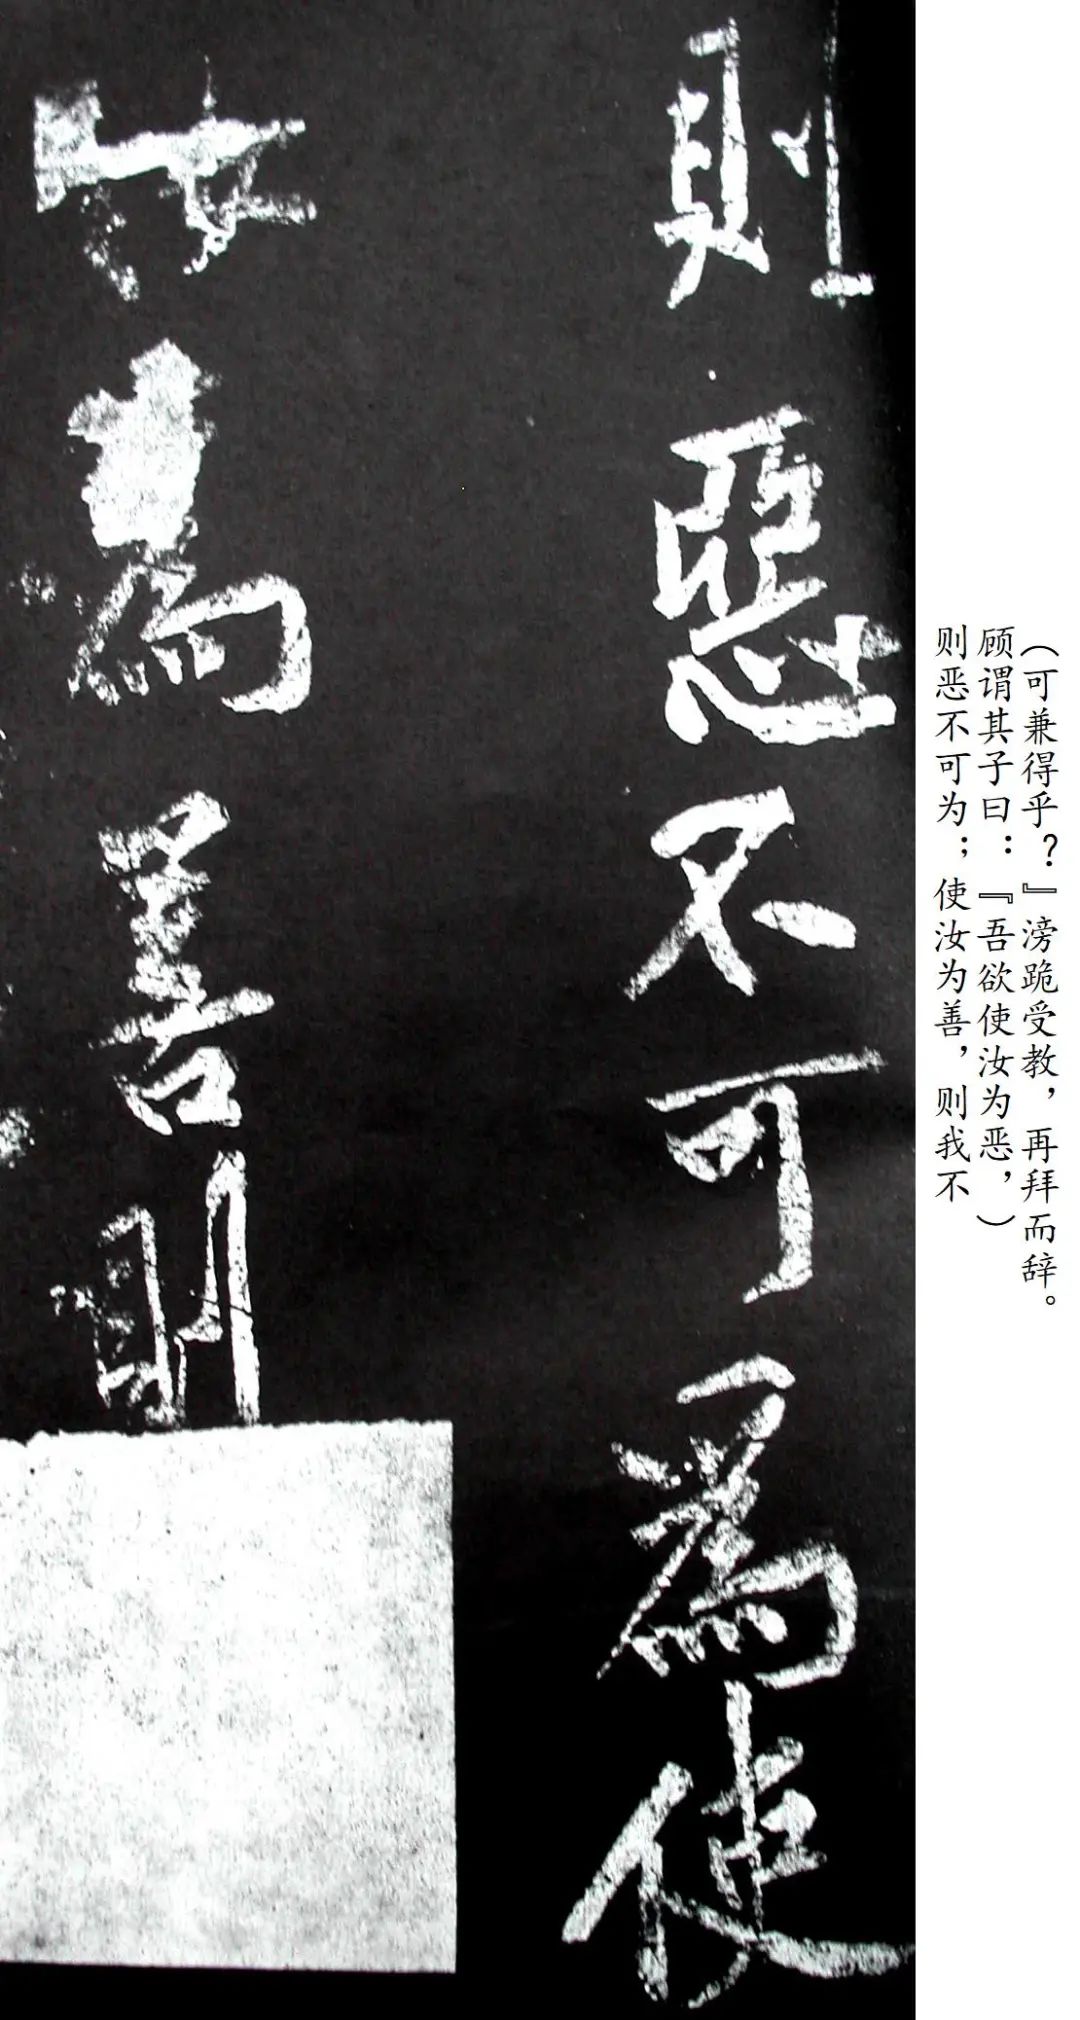 （可兼得乎？』滂跪受教，再拜而辞。
顾谓其子曰：『吾欲使汝为恶，）
则恶不可为；使汝为善，则我不
則惡不可為使
汝為善則